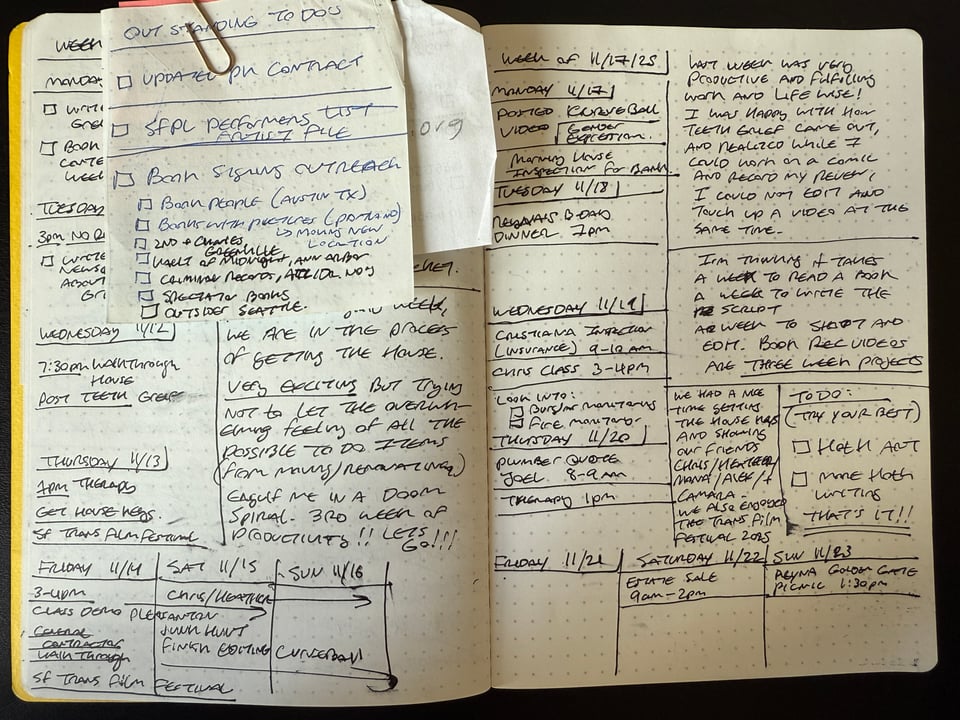 OUTSTANDING TO DOS
UPDATED PK CONTRACT
SFPL PERFORMERS LIST
ARTIST FILE
BOOK SIGNING OUTREACH
BOOK PEOPLE (AUSTIN TX)
BOOKS WITH PICTURES (PORTLAND)
↳ MOVING NEW
LOCATION
2ND + CHARLES
GREENVILLE
VAULT OF MIDNIGHT, ANN ARBOR
CRIMINAL RECORDS,
SPECTATOR BOOKS
OUTSIDER SEATTLE.
.org
WEEK
MONDAY
WRITE
BOOK
CONTE
WEEK
TUESDAY
3pm NO
WRITE
NEWS
ABOUT
WEDNESDAY 11/12
7:30pm WALKTHROUGH
HOUSE
POST TEETH GRIEF
THURSDAY 11/13
1pm THERAPY
GET HOUSE KEYS.
SF TRANS FILM FESTIVAL
WEEK,
WE ARE IN THE PROCESS
OF GETTING THE HOUSE.
VERY EXCITING BUT TRYING
NOT TO LET THE OVERWH-
ELMING FEELING OF ALL THE
POSSIBLE TO DO ITEMS
(FROM MOVING/RENOVATING)
ENGULF ME IN A DOOM
SPIRAL. 3RD WEEK OF
PRODUCTIVITY!! LETS
GO!!!
FRIDAY 11/14
3-4pm
CLASS DEMO PLEASANTON
GENERAL
CONTRACTOR
WALK THROUGH
SF TRANS FILM FESTIVAL
SAT 11/15
CHRIS/HEATHER
JUNK HUNT
FINISH EDITING CURVEBALL
SUN 11/16
WEEK OF 11/17/25
MONDAY 11/17
POSTED CURVEBALL
VIDEO GENDER
EXPRESSION.
MORNING HOUSE
INSPECTION FOR BANK
TUESDAY 11/18
B-DAY
DINNER 7pm
WEDNESDAY 11/19
CRISTIANA INSPECTION
(INSURANCE) 9-10 AM
CHRIS CLASS 3-4pm
LOOK INTO:
BURGLAR MONITORING
FIRE MONITOR
THURSDAY 11/20
PLUMBER QUOTE
JOEL 8-9am
THERAPY 1pm
LAST WEEK WAS VERY
PRODUCTIVE AND FULFILLING
WORK AND LIFE WISE!
I WAS HAPPY WITH HOW
TEETH GRIEF CAME OUT,
AND REALIZED WHILE I
COULD WORK ON A COMIC
AND RECORD MY REVIEW,
I COULD NOT EDIT AND
TOUCH UP A VIDEO AT THE
SAME TIME.
I'M THINKING IT TAKES
A WEEK TO READ A BOOK
A WEEK TO WRITE THE
SCRIPT
A WEEK TO SHOOT AND
EDIT. BOOK REC VIDEOS
ARE THREE WEEK PROJECTS
WE HAD A NICE
TIME GETTING
THE HOUSE KEYS
AND SHOWING
OUR FRIENDS
CHRIS/HEATHER
MANA/ALEX/+
CAMARA.
WE ALSO ENJOYED
THE TRANS FILM
FESTIVAL 2025
TO DO:
(TRY YOUR BEST)
HOTH ART
MORE HOTH
WRITING
THAT'S IT!!
FRIDAY 11/21
SATURDAY 11/22
ESTATE SALE
9am-2pm
SUN 11/23
GOLDEN GATE
PICNIC 1:30pm